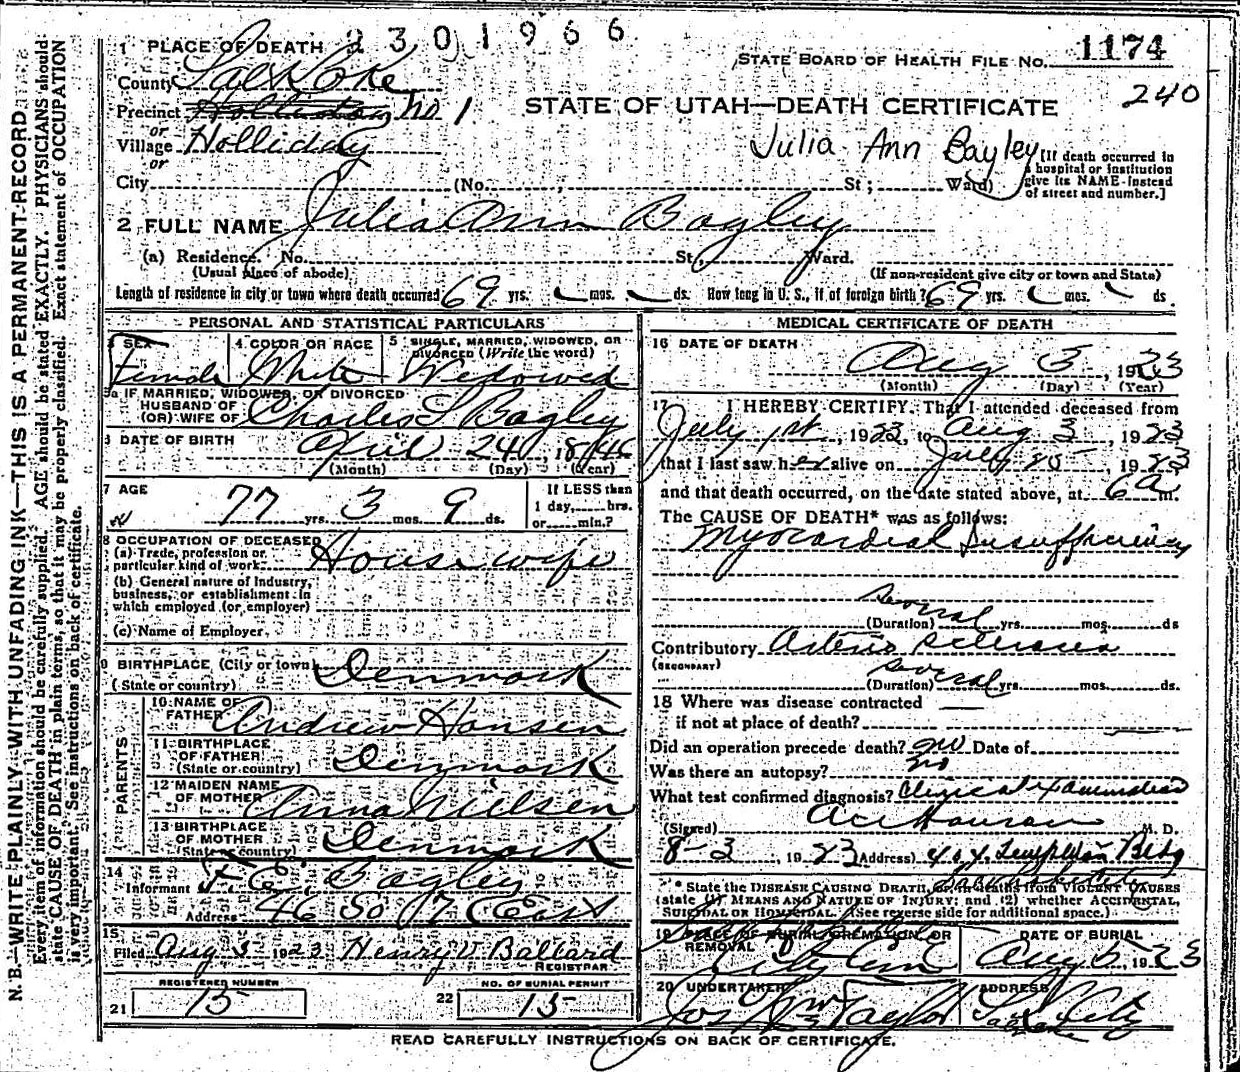 2301966
1 PLACE OF DEATH
STATE BOARD OF HEALTH FILE No. 1174
County Salt Lake
240
Precinct No 1
STATE OF UTAH—DEATH CERTIFICATE
or
Village Holliday
Julia Ann Bagley
or
City (No. , St; Ward)
[If death occurred in a hospital or institution give its NAME instead of street and number.]
2 FULL NAME Julia Ann Bagley
(a) Residence. No. St, Ward.
(Usual place of abode) (If non-resident give city or town and State)
Length of residence in city or town where death occurred 69 yrs. mos. ds. How long in U. S., if of foreign birth? 69 yrs. mos. ds
PERSONAL AND STATISTICAL PARTICULARS
3 SEX Female
4 COLOR OR RACE White
5 SINGLE, MARRIED, WIDOWED, OR DIVORCED (Write the word) Widowed
5a IF MARRIED, WIDOWED, OR DIVORCED
HUSBAND OF
(OR) WIFE OF Charles S Bagley
6 DATE OF BIRTH April 24, 1846
(Month) (Day) (Year)
7 AGE 77 yrs. 3 mos. 9 ds.
If LESS than 1 day, hrs. or min.?
8 OCCUPATION OF DECEASED
(a) Trade, profession or particular kind of work House wife
(b) General nature of Industry, business, or establishment in which employed (or employer)
(c) Name of Employer
9 BIRTHPLACE (City or town)
(State or country) Denmark
PARENTS
10 NAME OF FATHER Andrew Hansen
11 BIRTHPLACE OF FATHER (State or country) Denmark
12 MAIDEN NAME OF MOTHER Anna Nielsen
13 BIRTHPLACE OF MOTHER (State or country) Denmark
14 Informant F. E. Bagley
Address 46 So 17 East
15 Filed Aug 5 1923 Henry V. Ballard
REGISTRAR
REGISTERED NUMBER
21 15
NO. OF BURIAL PERMIT
22 15
MEDICAL CERTIFICATE OF DEATH
16 DATE OF DEATH
Aug 3, 1923
(Month) (Day) (Year)
17 I HEREBY CERTIFY, That I attended deceased from
July 1st, 1923, to Aug 3, 1923
that I last saw her alive on July 25, 1923
and that death occurred, on the date stated above, at 6 a m.
The CAUSE OF DEATH* was as follows:
Myocardial Insufficiency
several
(Duration) yrs. mos. ds
Contributory Arterio sclerosis
(SECONDARY)
several
(Duration) yrs. mos. ds.
18 Where was disease contracted
if not at place of death?
Did an operation precede death? no Date of
Was there an autopsy? no
What test confirmed diagnosis? Clinical Examination
(Signed) M. D.
8-3, 1923 (Address) Templeton Bldg
* State the DISEASE CAUSING DEATH, or in deaths from VIOLENT CAUSES
(state (1) MEANS AND NATURE OF INJURY; and (2) whether ACCIDENTAL,
SUICIDAL OR HOMICIDAL. (See reverse side for additional space.)
19 PLACE OF BURIAL, CREMATION, OR REMOVAL
City Cem
DATE OF BURIAL
Aug 5, 1923
20 UNDERTAKER
Jos Wm Taylor
ADDRESS
Salt Lake City
READ CAREFULLY INSTRUCTIONS ON BACK OF CERTIFICATE.
N. B.—WRITE PLAINLY WITH UNFADING INK—THIS IS A PERMANENT RECORD
Every item of information should be carefully supplied. AGE should be stated EXACTLY. PHYSICIANS should
state CAUSE OF DEATH in plain terms, so that it may be properly classified. Exact statement of OCCUPATION
is very important. See instructions on back of certificate.